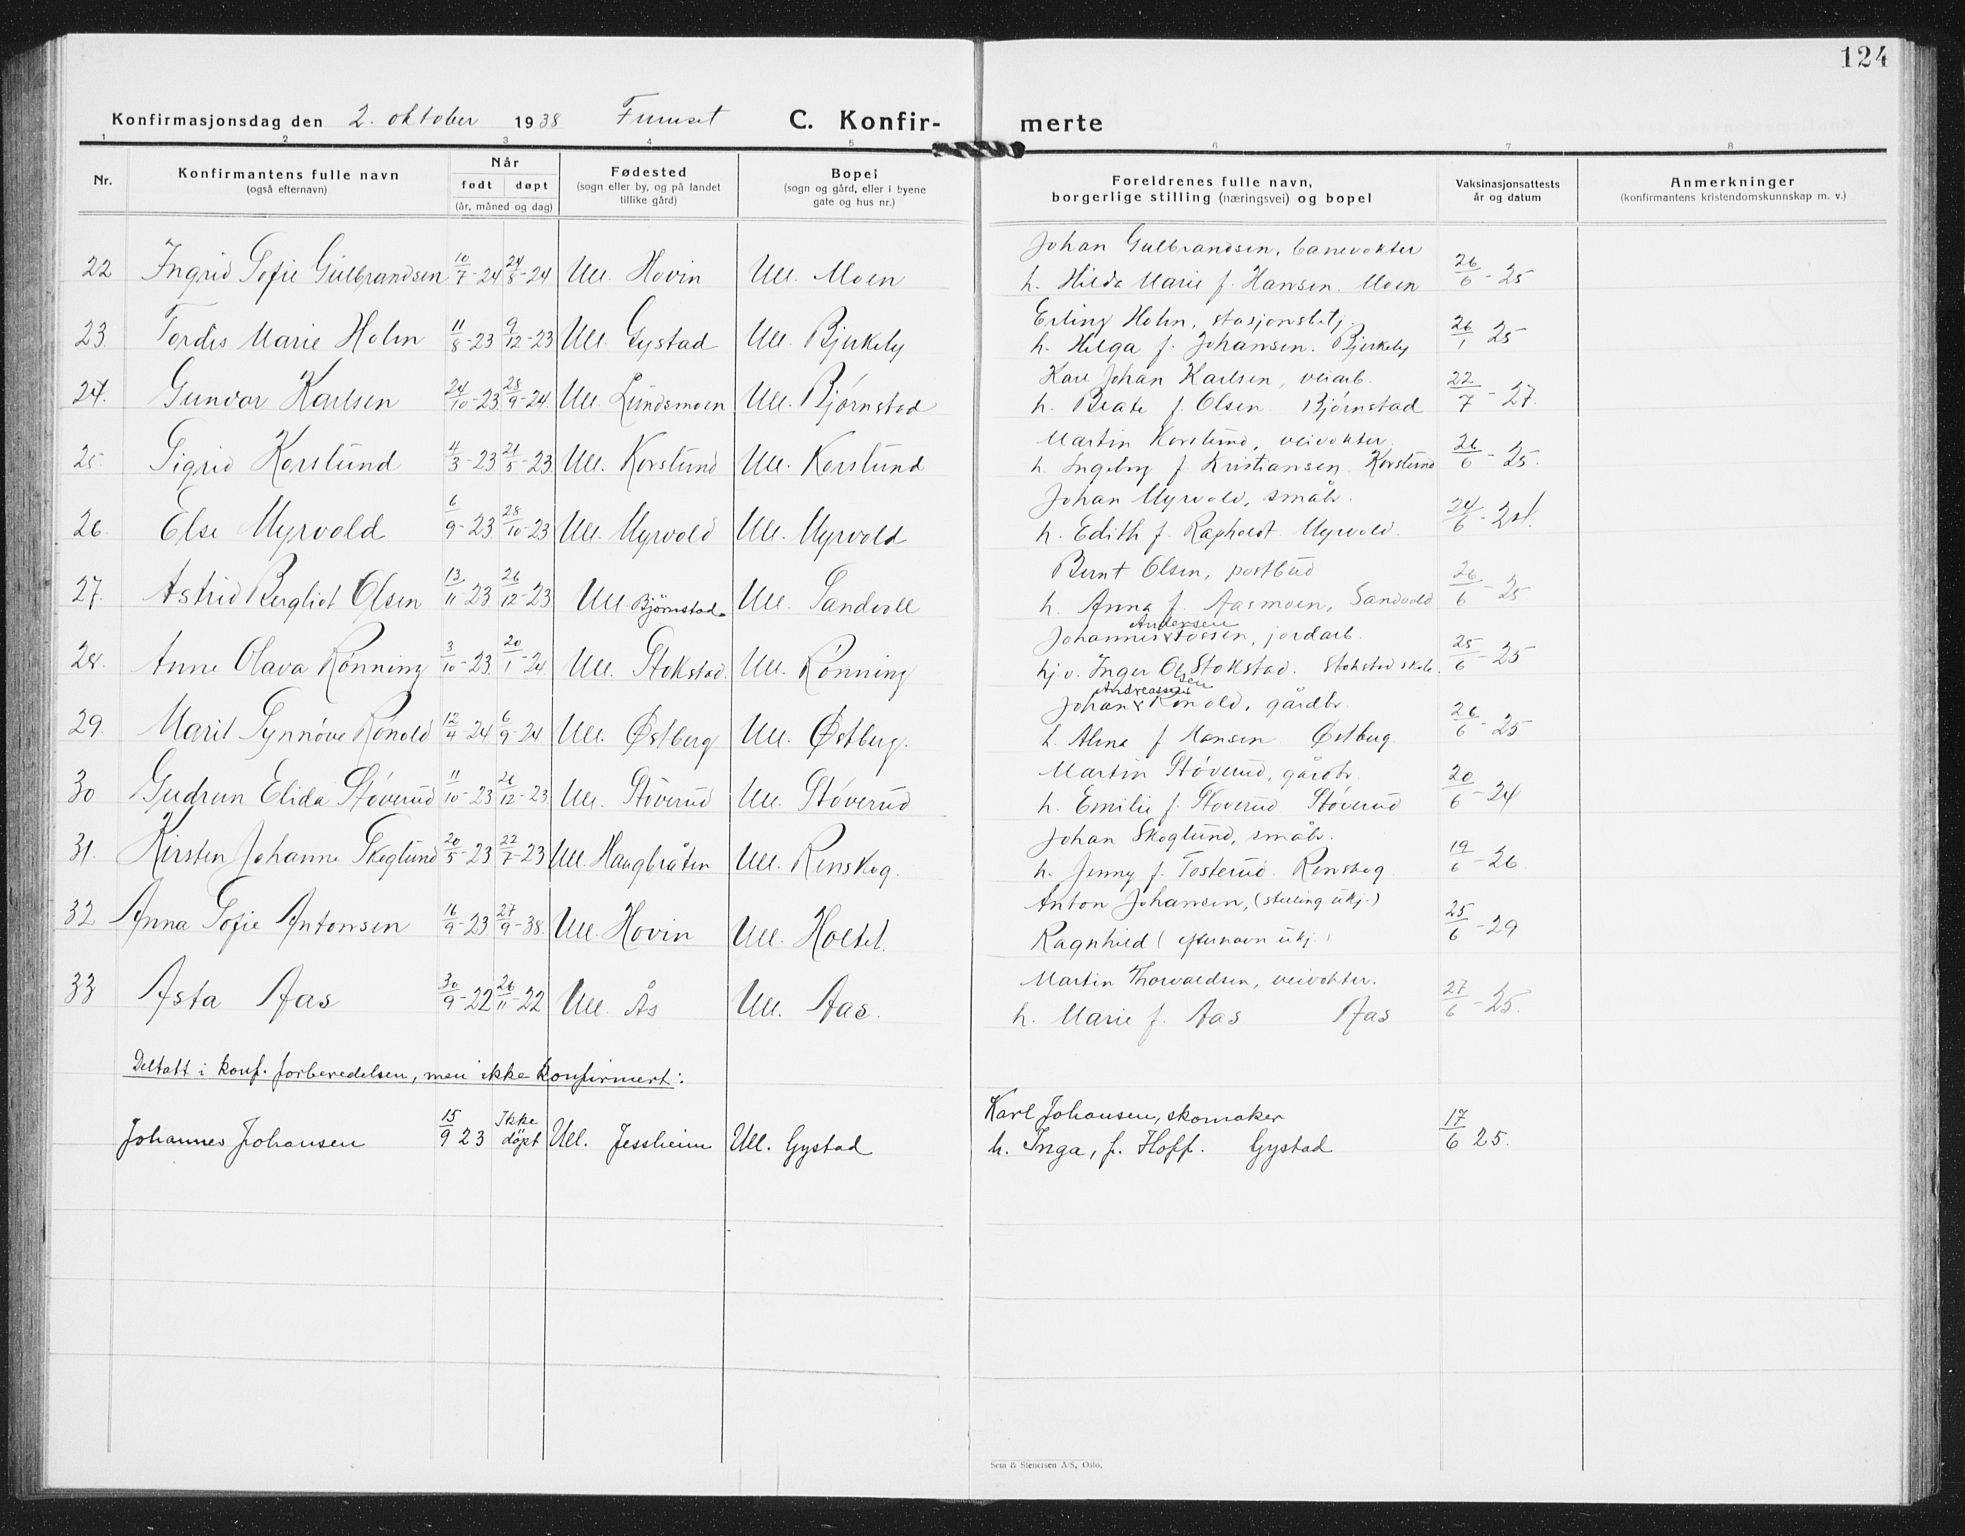 124
Konfirmasjonsdag den 2. oktober 1938 Furuset C. Konfir- merte
1 2 3 4 5 6 7 8
Nr. Konfirmantens fulle navn Når Fødested Bopel Foreldrenes fulle navn, Vaksinasjonsattests Anmerkninger
(også efternavn) født døpt (sogn eller by, og på landet (sogn og gård, eller i byene borgerlige stilling (næringsvei) og bopel år og datum (konfirmantens kristendomskunnskap m. v.)
(år, måned og dag) tillike gård) gate og hus nr.)
Johan Gulbrandsen, banevokter
22 Ingrid Sofie Gulbrandsen 10/7-24 24/8-24 Ull. Hovin Ull. Moen h. Hilda Marie f. Hansen. Moen 26/6-25
Erling Holm, stasjonsbetj.
23 Tordis Marie Holm 11/8-23 9/12-23 Ull. Gystad Ull. Bjerkely h. Helga f. Johansen. Bjerkely 26/1 25
Karl Johan Karlsen, veiarb.
24. Gunvor Karlsen 24/10-23 28/9-24. Ull. Lundsmoen Ull. Bjørnstad h. Beate f. Olsen Bjørnstad 22/7-27.
Martin Korslund, veivokter.
25. Sigrid Korslund 4/3-23 21/5-23 Ull. Korslund Ull. Korslund h. Ingeborg f. Kristiansen Korslund 26/6-25.
Johan Myrvold, småbr.
26. Else Myrvold 6/9-23 28/10-23 Ull. Myrvold Ull. Myrvold h. Edith f. Rapholdt Myrvold. 24/6-24.
Bernt Olsen, postbud
27. Astrid Bergliot Olsen 13/11-23 26/12-23 Ull. Bjørnstad Ull. Sandvoll h. Anna f. Aasmoen, Sandvold 26/6-25
Andersen
Johannes x Fossen, jordarb.
28. Anne Olava Rønning 3/10-23 20/1-24 Ull. Stokstad. Ull. Rønning hj.v. Inger Olsen Stokstad. Stokstad skole. 25/6-25
Andreassen
Johan x Rønold, gårdbr.
29. Marit Synnøve Rønold 12/4-24 6/9-24 Ull. Østberg Ull. Østberg. h. Alma f. Hansen Østberg 26/6-25
Martin Støverud, gårdbr.
30 Gudrun Elida Støverud 11/10-23 26/12-23 Ull. Støverud Ull. Støverud h. Emilie f. Støverud Støverud 20/6-24
Johan Skoglund, småbr.
31. Kirsten Johanne Skoglund 20/5-23 22/7-23 Ull. Haugbråten Ull. Renskog. h. Jenny f. Tosterud. Renskog 19/6-26
Anton Johansen, (stilling ukj.)
32 Anna Sofie Antonsen 16/9-23 27/9-38. Ull. Hovin Ull. Holtet. Ragnhild (efternavn ukj.) 25/6-29
Martin Thorvaldsen, veivokter.
33 Asta Aas 30/9-22 26/11-22 Ull. Ås Ull. Aas. h. Marie f. Aas Aas 27/6-25.
Deltatt i konf. forberedelsen, men ikke konfirmert:
Karl Johansen, skomaker
Johannes Johansen 15/9 23 Ikke døpt Ull. Jessheim Ull. Gystad h. Inga, f. Hoff. Gystad 17/6 25.
Sem & Stenersen A/S, Oslo.